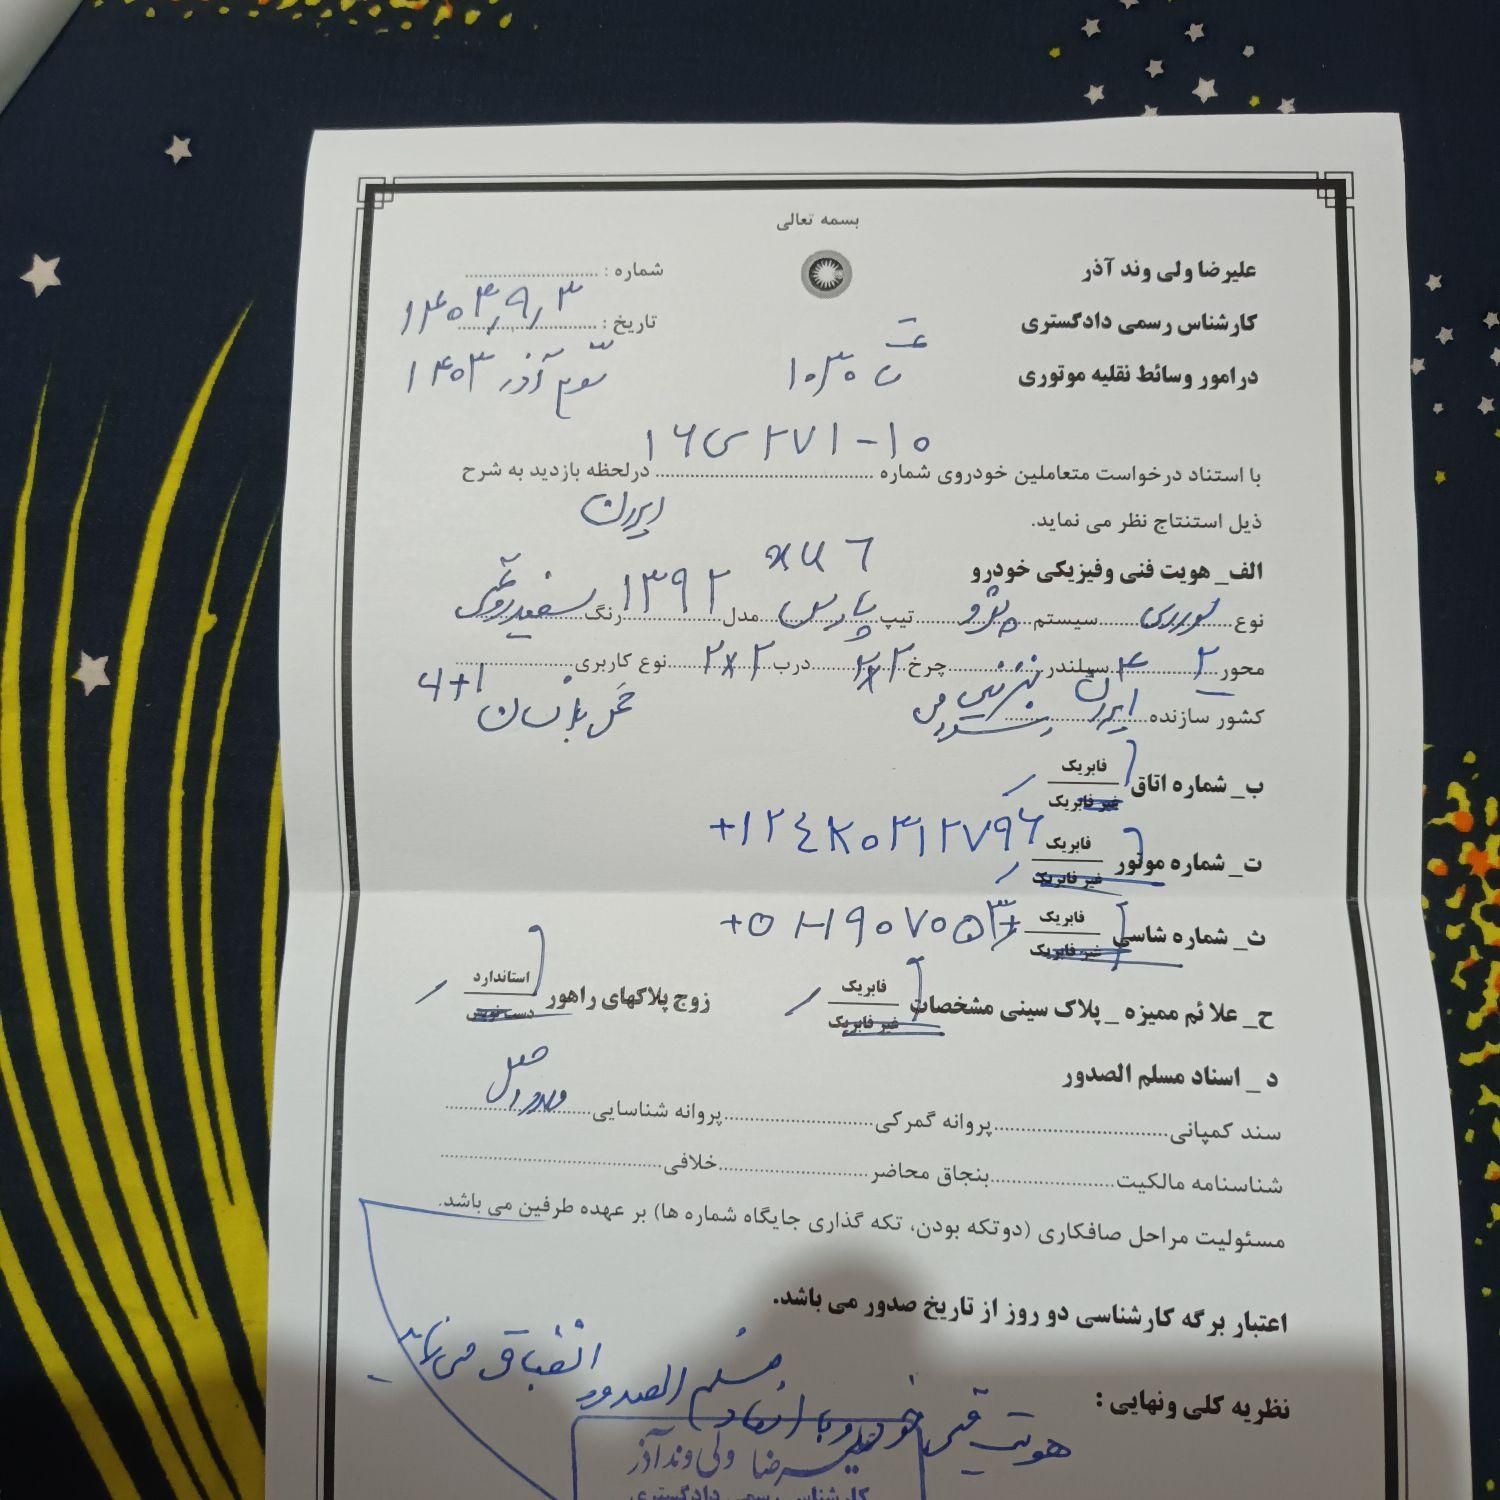 بسمه تعالی
علیرضا ولی وند آذر
شماره :
کارشناس رسمی دادگستری
تاریخ : ۱۴۰۳,۹,۳
درامور وسائط نقلیه موتوری
۱۰,۳۰
سوم آذر ۱۴۰۳
۱۶ س ۲۷۱ - ۱۰
با استناد درخواست متعاملین خودروی شماره درلحظه بازدید به شرح
ذیل استنتاج نظر می نماید.
ایران
الف_ هویت فنی وفیزیکی خودرو
XU7
نوع سواری سیستم پژو تیپ پارس مدل ۱۳۹۲ رنگ سفید روغنی
محور ۲ سیلندر ۴ چرخ ۲x۲ درب ۲x۲ نوع کاربری
کشور سازنده ایران بنزینی می
حمل بانسان ۴+۱
ب_ شماره اتاق فابریک
غیر فابریک
ت_ شماره موتور فابریک +124K0312796
غیر فابریک
ث_ شماره شاسی فابریک
غیر فابریک
ح_ علائم ممیزه _ پلاک سینی مشخصات فابریک
غیر فابریک
زوج پلاکهای راهور استاندارد
دست نویس
د _ اسناد مسلم الصدور
سند کمپانی پروانه گمرکی پروانه شناسایی
شناسنامه مالکیت بنجاق محاضر خلافی
مسئولیت مراحل صافکاری (دوتکه بودن، تکه گذاری جایگاه شماره ها) بر عهده طرفین می باشد.
اعتبار برگه کارشناسی دو روز از تاریخ صدور می باشد.
نظریه کلی ونهایی :
هویت فنی خودرو با اسناد مسلم الصدور انطباق می نماید
علیرضا ولی وند آذر
کارشناس رسمی دادگستری